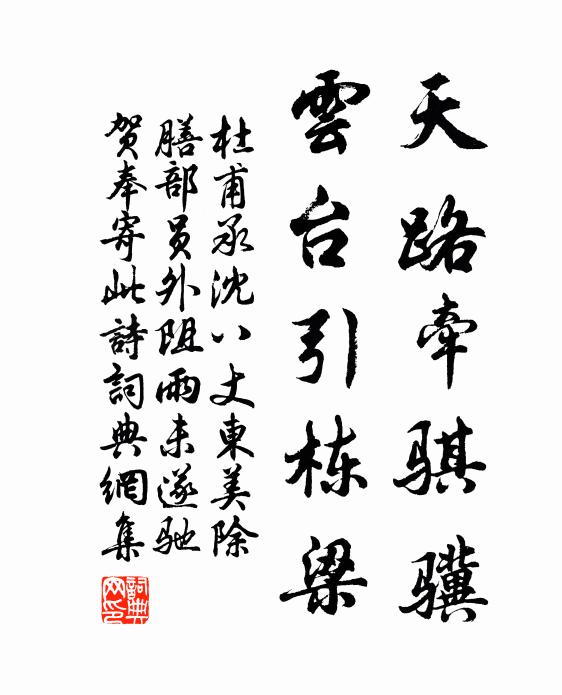 天路牵骐骥
雲台引栋梁
杜甫承沈八丈東美除
膳部員外阻雨未遂驰
贺奉寄此詩詞典網集
詞典网印